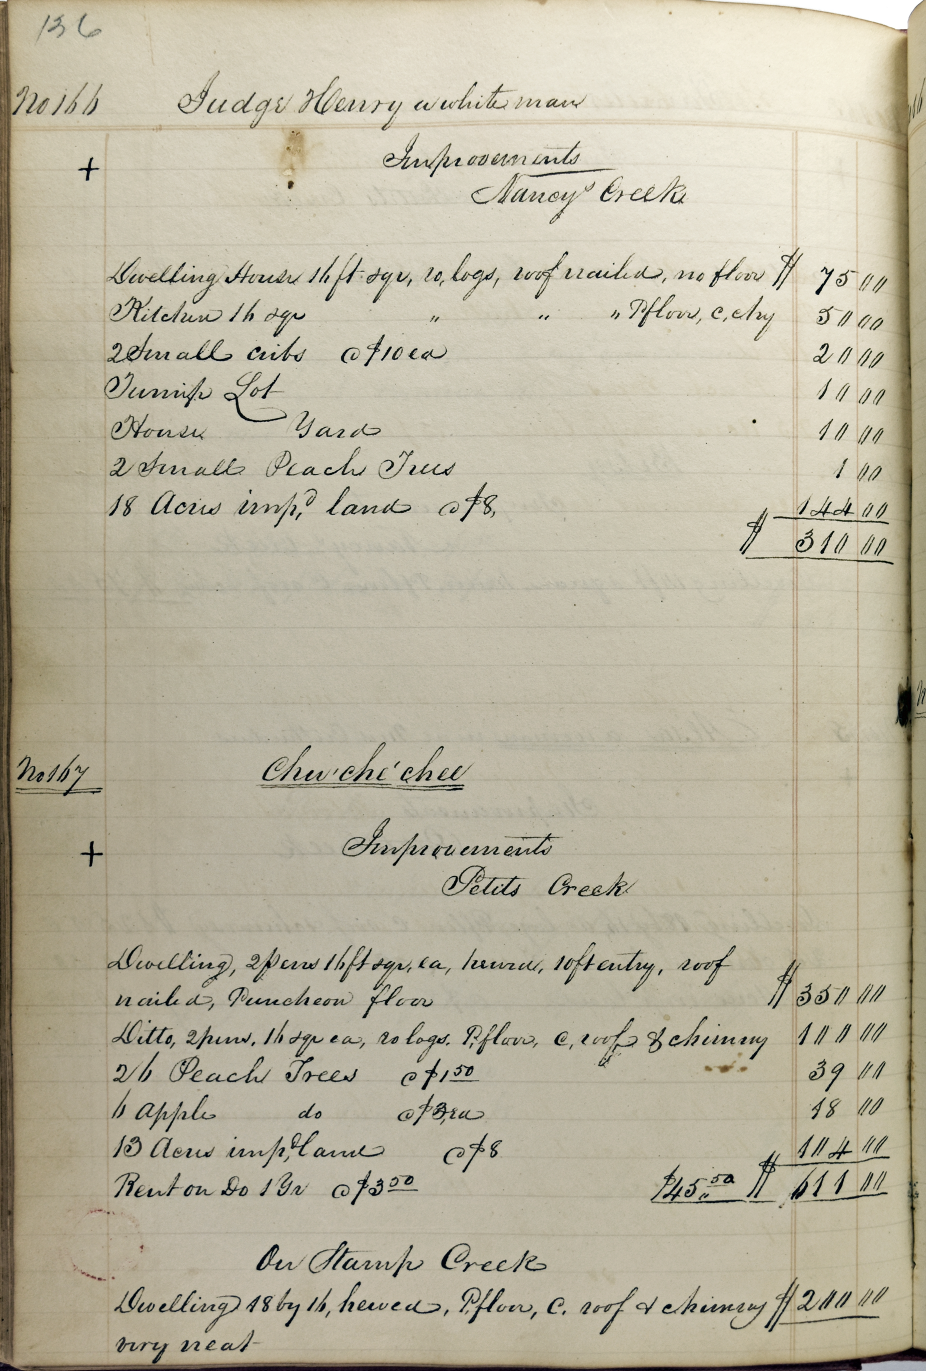 136
No 166 Judge Henry a white man
+ Improvements
Nancys Creek
Dwelling House 16 ft sqr, ro, logs, roof nailed, no floor $ 75 00
Kitchen 16 sqr " " " P floor, C, chy 50 00
2 Small cribs @ $10 ea 20 00
Turnip Lot 10 00
House Yard 10 00
2 Small Peach Trees 1 00
18 Acres imp,d land @ $8, 144 00
$ 310 00
No 167 Chu'ché'chee
+ Improvements
Petits Creek
Dwelling, 2 pens 16 ft sqr, ea, hewed, 10 ft entry, roof
nailed, Puncheon floor $ 350 00
Ditto, 2 pens, 16 sqr ea, ro logs. P, floor, C, roof & chimney 100 00
26 Peach Trees @ $1 50 39 00
6 Apple do @ $3, ea 18 00
13 Acres imp,d land @ $8 104 00
Rent on Do 1 Yr @ $3 50 $45,, 50 $ 611 00
On Stamp Creek
Dwelling 18 by 16, hewed, P, floor, C. roof & chimney $ 200 00
very neat